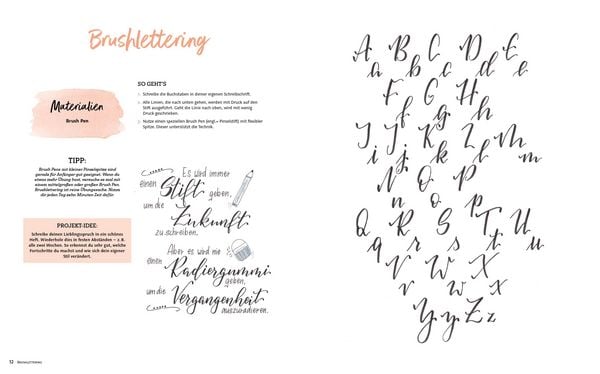 Brushlettering
Materialien
Brush Pen
SO GEHT'S
Schreibe die Buchstaben in deiner eigenen Schreibschrift.
Alle Linien, die nach unten gehen, werden mit Druck auf den
Stift ausgeführt. Geht die Linie nach oben, wird mit wenig
Druck geschrieben.
Nutze einen speziellen Brush Pen (engl = Pinselstift) mit flexibler
Spitze. Dieser unterstützt die Technik.
TIPP:
Brush Pens mit kleiner Pinselspitze sind
gerade für Anfänger gut geeignet. Wenn du
etwas mehr Übung hast, versuche es mal mit
einem mittelgroßen oder großen Brush Pen.
Brushlettering ist reine Übungssache. Nimm
dir jeden Tag zehn Minuten Zeit dafür.
PROJEKT-IDEE:
Schreibe deinen Lieblingsspruch in ein schönes
Heft. Wiederhole dies in festen Abständen – z. B.
alle zwei Wochen. So erkennst du sehr gut, welche
Fortschritte du machst und wie sich dein eigener
Stil verändert.
Es wird immer
einen Stift geben,
um die Zukunft
zu schreiben.
Aber es wird nie
einen Radiergummi
geben,
um die Vergangenheit
auszuradieren.
A B C D E
a b c d e
F G H
f g h
I J K L M
i j k l m
N O P
n o p
Q R S T U
q r s t u
V W X
v w x
Y y Z z
12 Brushlettering